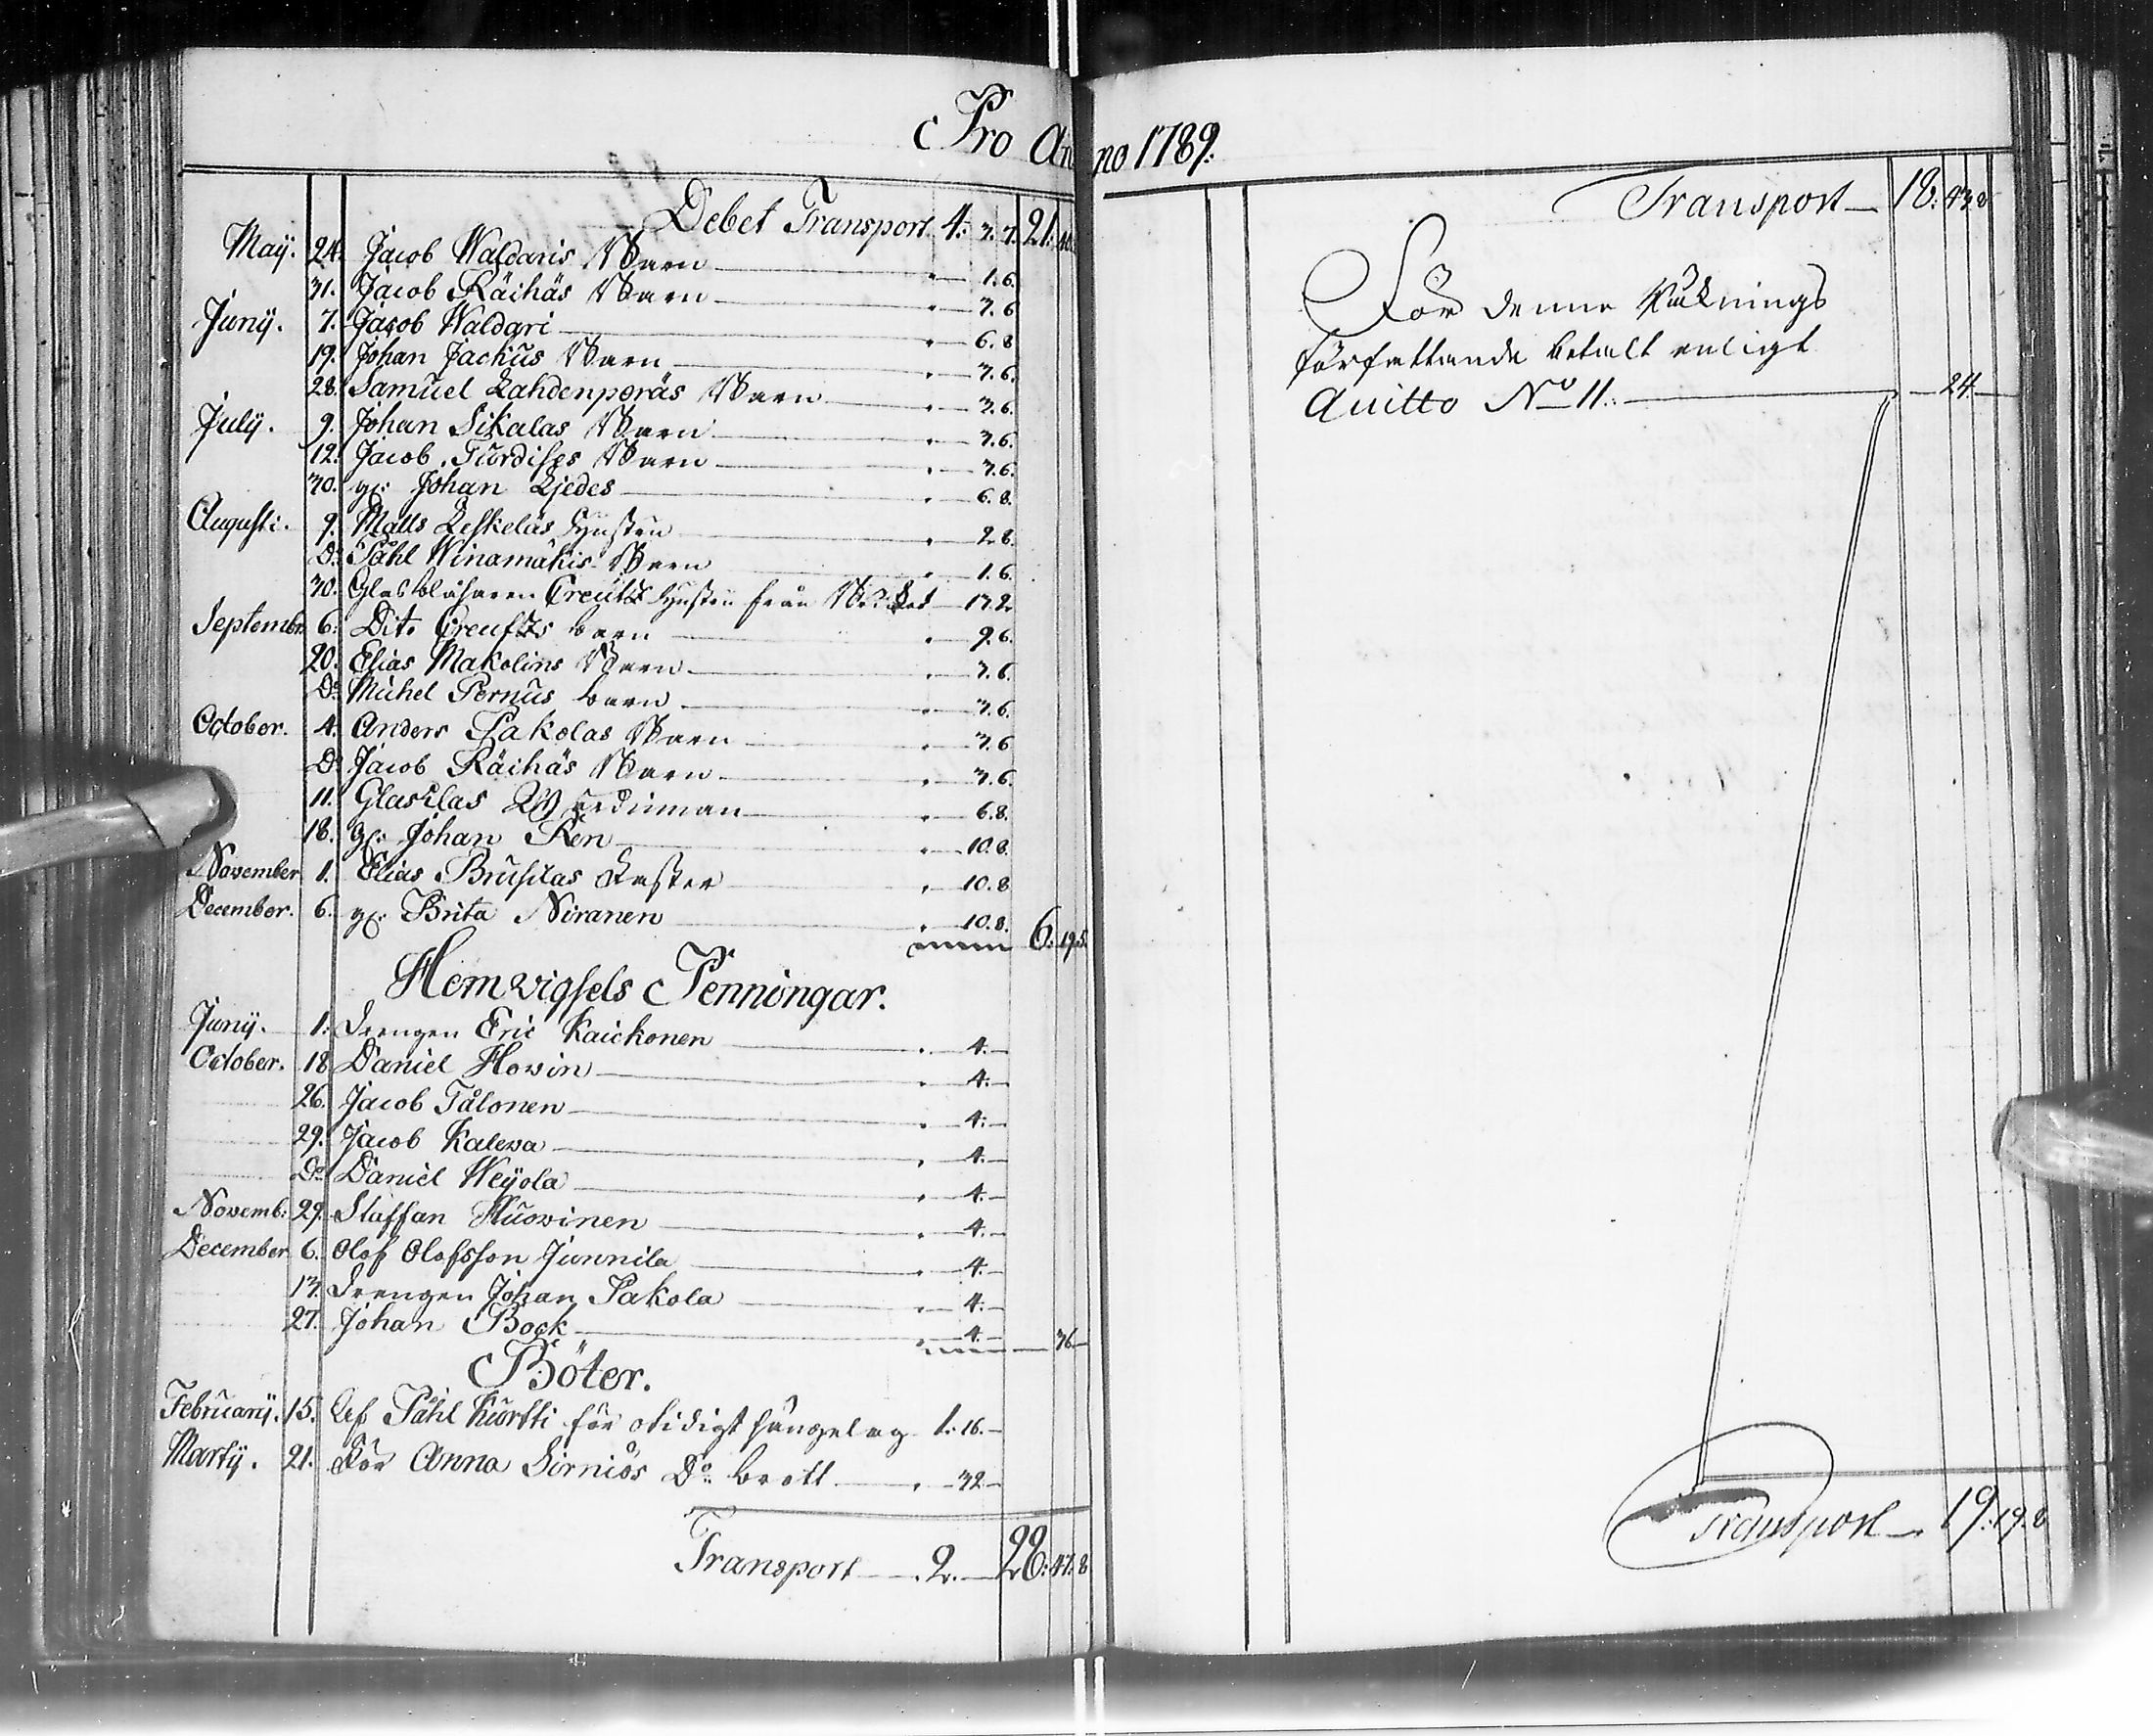 Pro Anno 1789.
Debet Transport 4: 3. 7. 21: 40.
Maÿ. 24. Jacob Waldaris Barn 1. 6.
31. Jacob Räihäs Barn 3. 6
Junÿ. 7. Jacob Waldari 6. 8
19. Johan Jackus Barn 3. 6.
28. Samuel Lahdenperäs Barn 3. 6.
Julÿ. 9. Johan Sikalas Barn 3. 6.
12. Jacob Turdises Barn 3. 6.
30. gl: Johan Ljedes 6. 8.
Augusti. 9. Matts Leskeläs Hustru 2 8.
Do Påhl Winamäkis Barn 1. 6.
30. Glasblåsaren Creutz Hustru från 13. 2
Septembr. 6. Dito Creutzs barn 9. 6.
20. Elias Makolins Barn 3. 6.
Do Michel Pernus barn 3. 6.
October. 4. Anders Pakolas Barn 3. 6
Do Jacob Räihäs Barn 3. 6.
11. 6. 8.
18. gl: Johan Ren 10. 8.
November 1. Elias Brusilas 10. 8
December. 6. gl: Brita Niranen 10. 8. 6: 19. 5.
Hemvigsels Penningar.
Junÿ. 1. Drengen Eric Kaickonen 4.
October. 18 Daniel Howin 4.
26. Jacob Tålonen 4.
29. Jacob Kalewa 4.
Do Daniel Weÿola 4.
Novemb: 29. Staffan Huovinen 4.
December 6. Olof Olofsson Junnila 4.
13. Drengen Johan Pakola 4.
27. Johan Bock 4. 36
Böter.
Februarÿ. 15. Af Påhl Kurtti för otidigt sängelag 1: 16.
Martÿ. 21. För Anna Sirniös Do brott 32
Transport 2. 28: 47. 8
Transport 18: 43. 8
För denna Räknings
författande betalt enligt
Quitto No 11. 24
Transport 19: 19. 8